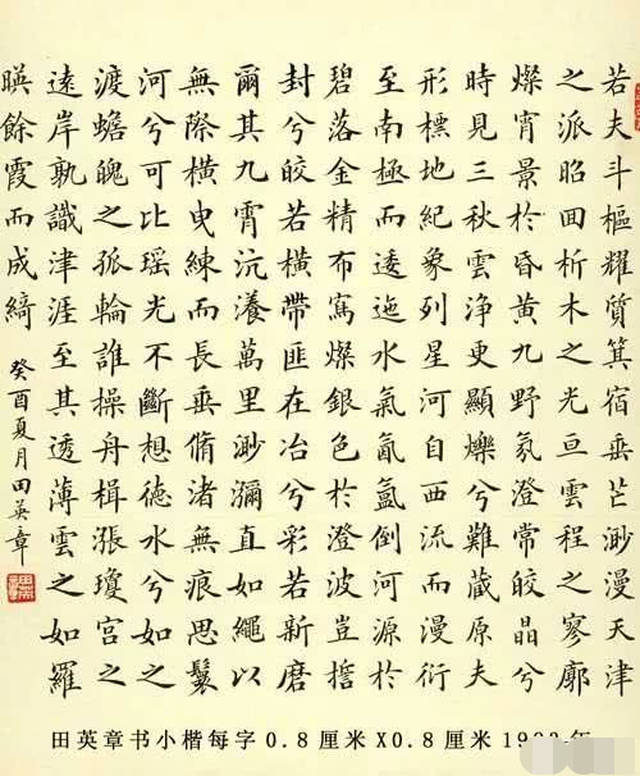 若夫斗樞耀質箕宿垂芒渺漫天津
之派昭囬析木之光亘雲程之寥廓
燦宵景於昏黃九野氛澄常皎晶兮
時見三秋雲淨更顯爍兮難蔵原夫
形標地紀象列星河自西流而漫衍
至南極而逶迤水氣氤氳倒河源於
碧落金精布寫燦銀色於澄波豈捨
封兮皎若橫帶匪在冶兮彩若新磨
爾其九霄沆瀁萬里渺瀰直如繩以
無際橫曳練而長垂脩渚無痕思鬟
河兮可比瑶光不斷想德水兮如之
渡蟾魄之孤輪誰操舟楫漲瓊宮之
遠岸孰識津涯至其透薄雲之如羅
暎餘霞而成綺
癸酉夏月田英章
田英章书小楷每字0.8厘米X0.8厘米